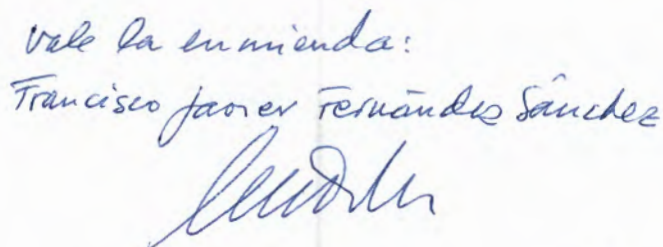 Vale la enmienda:
Francisco Javier Fernández Sánchez